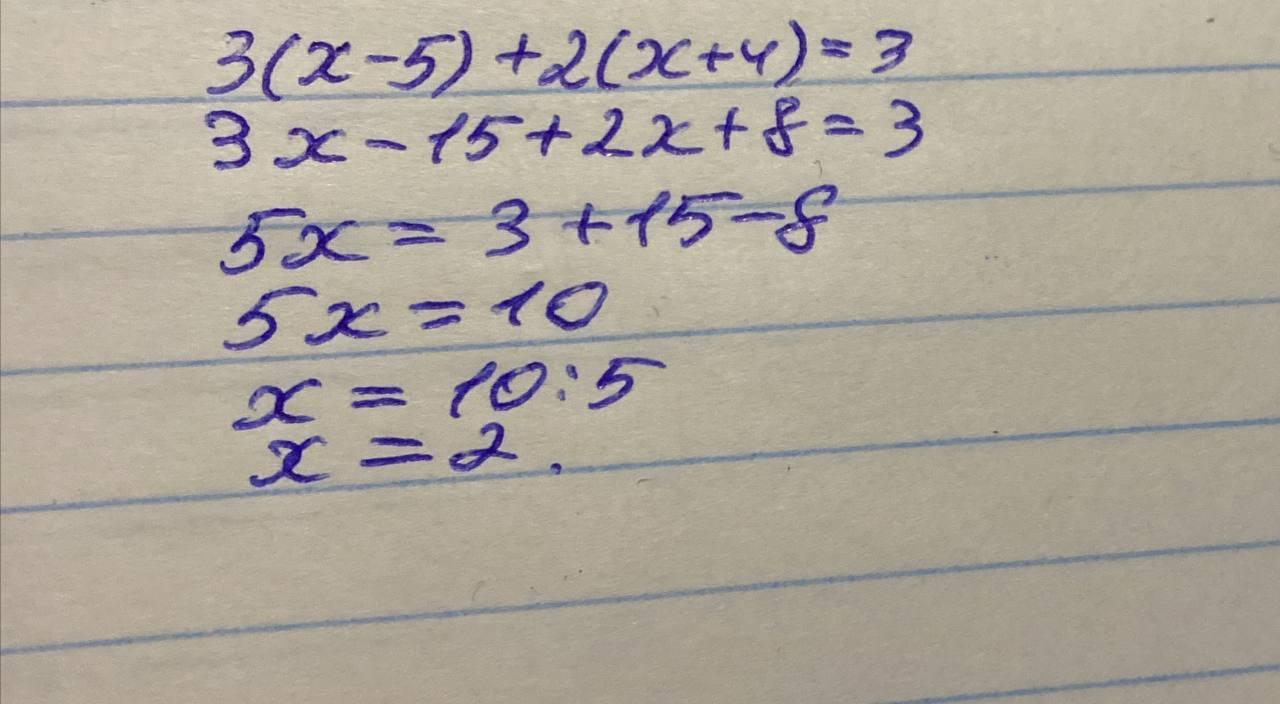 3(x-5)+2(x+4)=3
3x-15+2x+8=3
5x=3+15-8
5x=10
x=10:5
x=2.